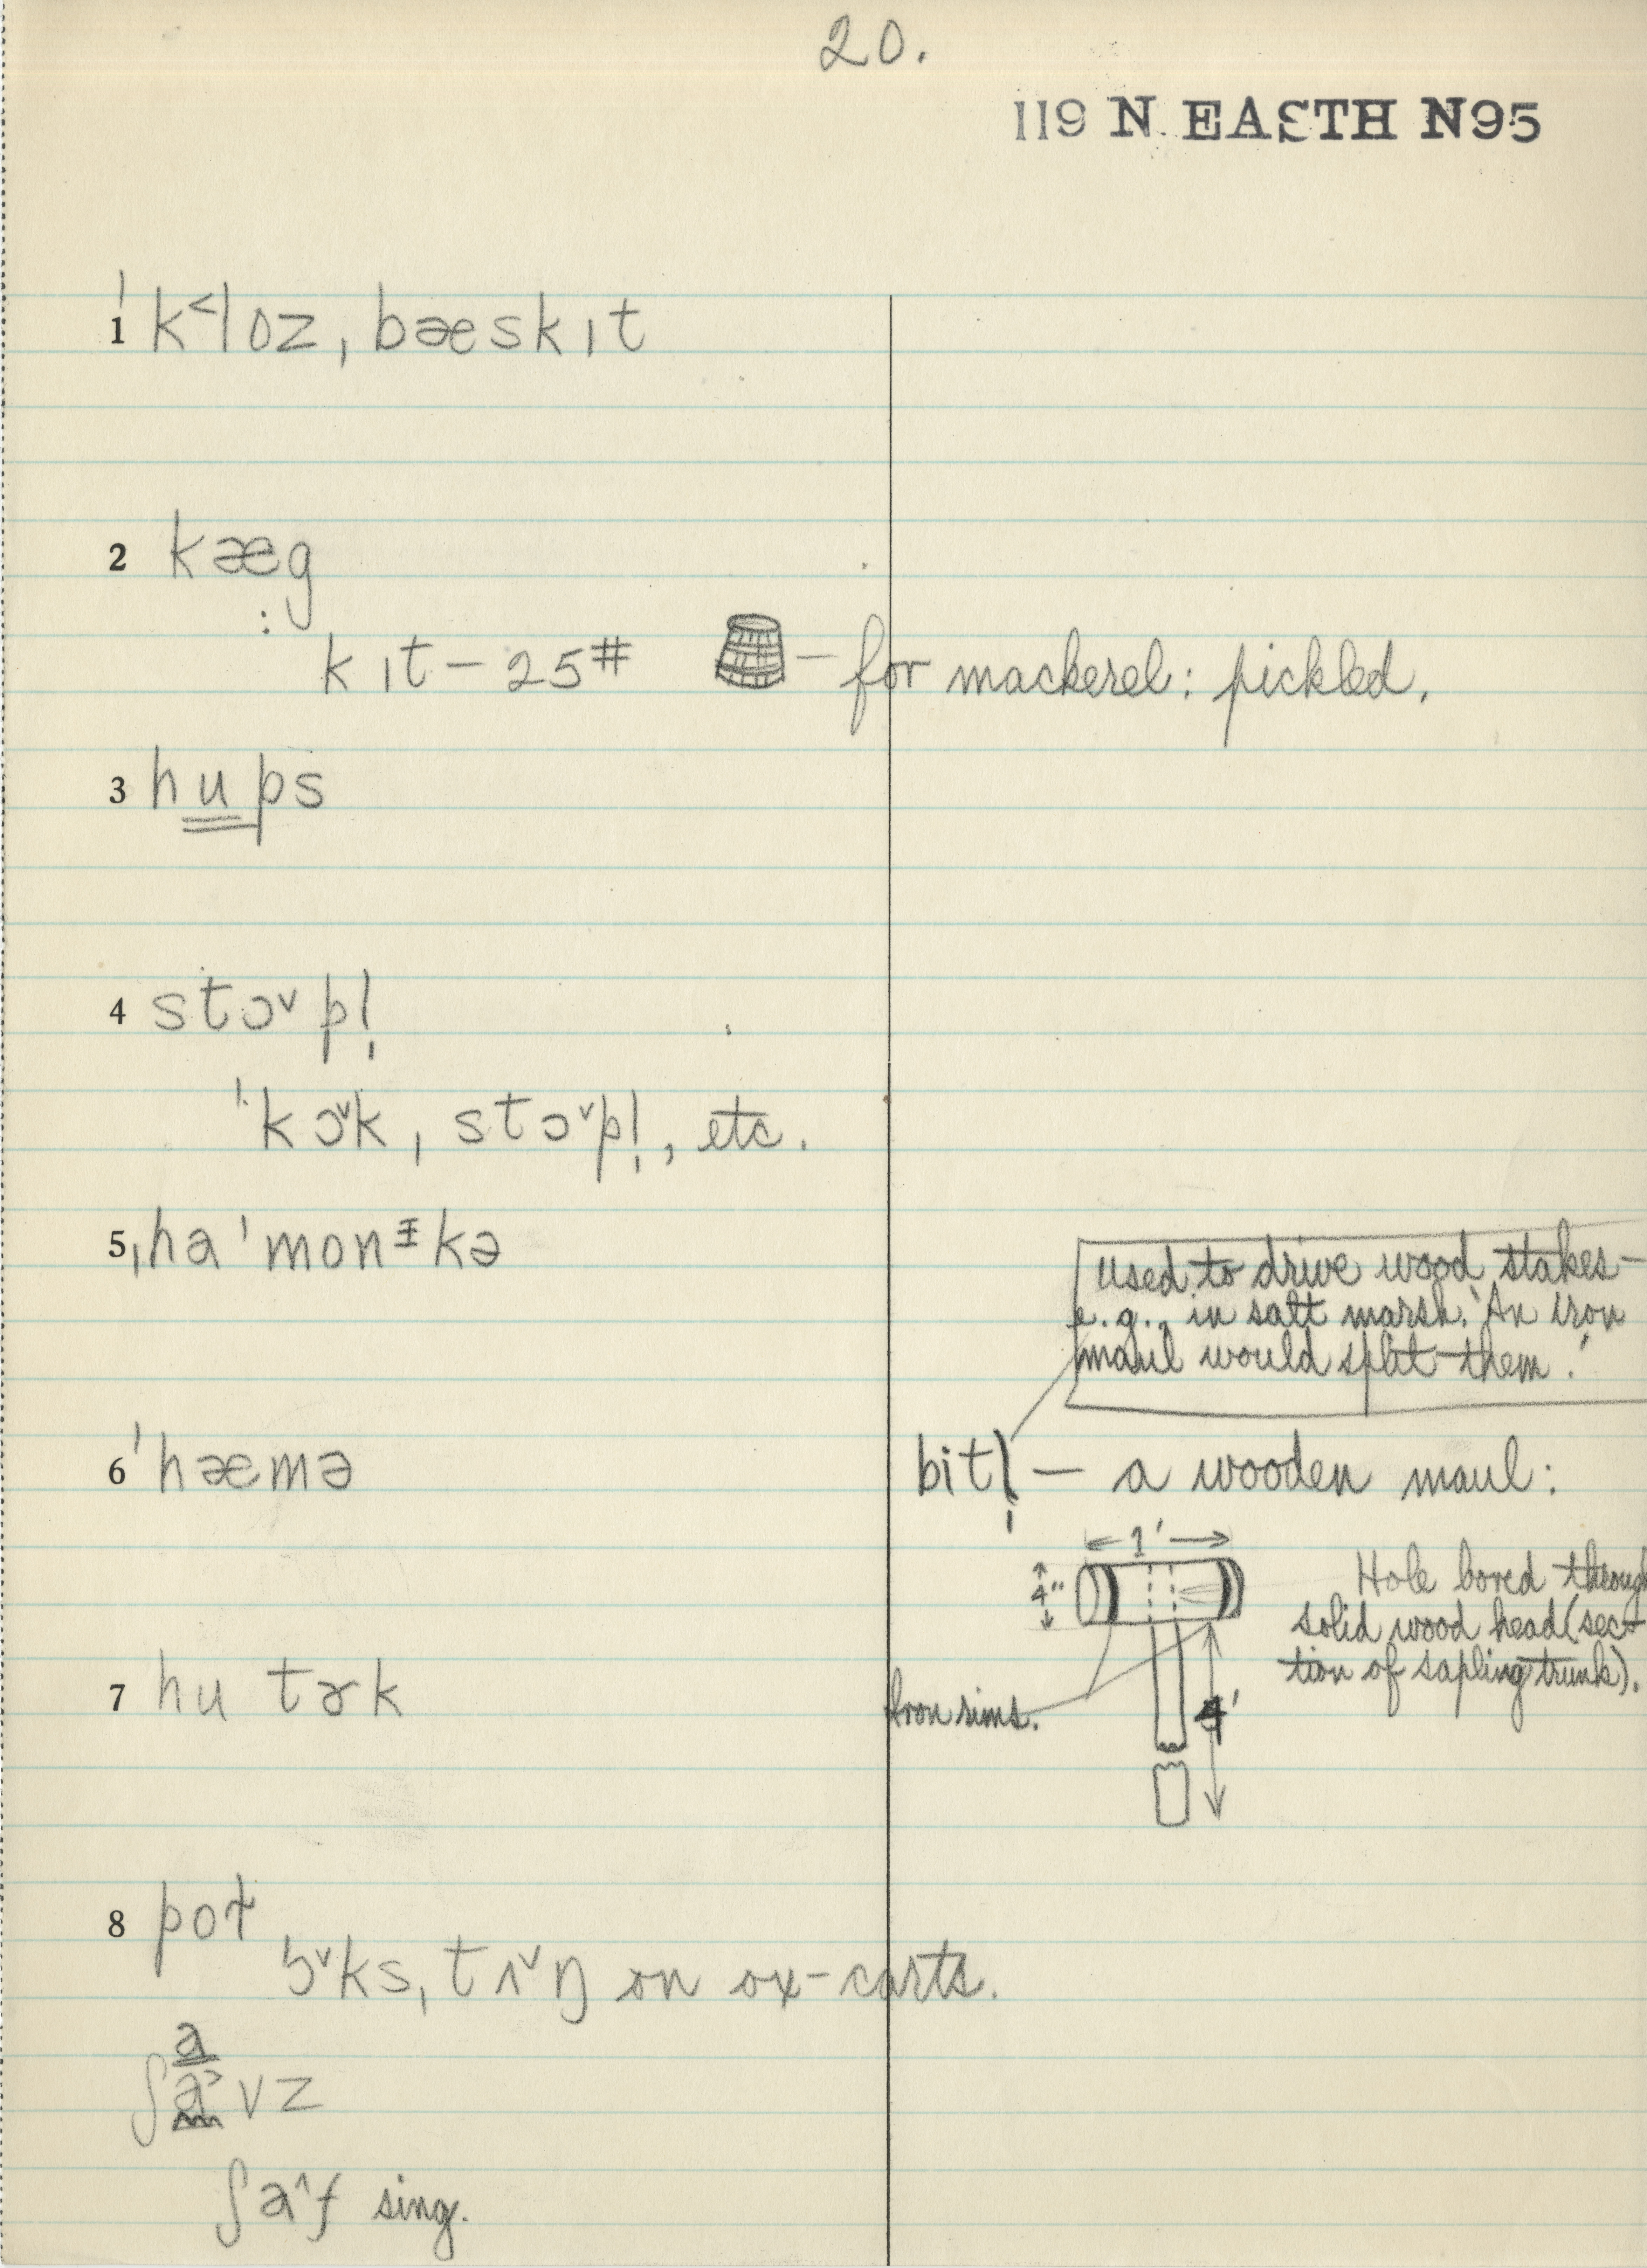 20.
119 N. EASTH N95
1 ˈk˂loz ˌbæskɪt
2 kæg
: kɪt – 25# – for mackerel: pickled.
3 hups
4 stɔ˅pl̩
ˈkɔ˅kˌstɔ˅pl̩, etc.
5 ˌhaˈmonᵻkə
used to drive wood stakes –
e.g., in salt marsh. 'An iron
maul would split them.'
6 ˈhæmə
bitl̩ – a wooden maul:
1'
4"
Hole bored through
solid wood head (sec-
tion of sapling trunk).
7 hu tɚk
Iron rims.
4'
8 pot
ɔ˅ksˌtʌ˅ŋ on ox-carts.
a
ʃa˃vz
ʃa˄f sing.